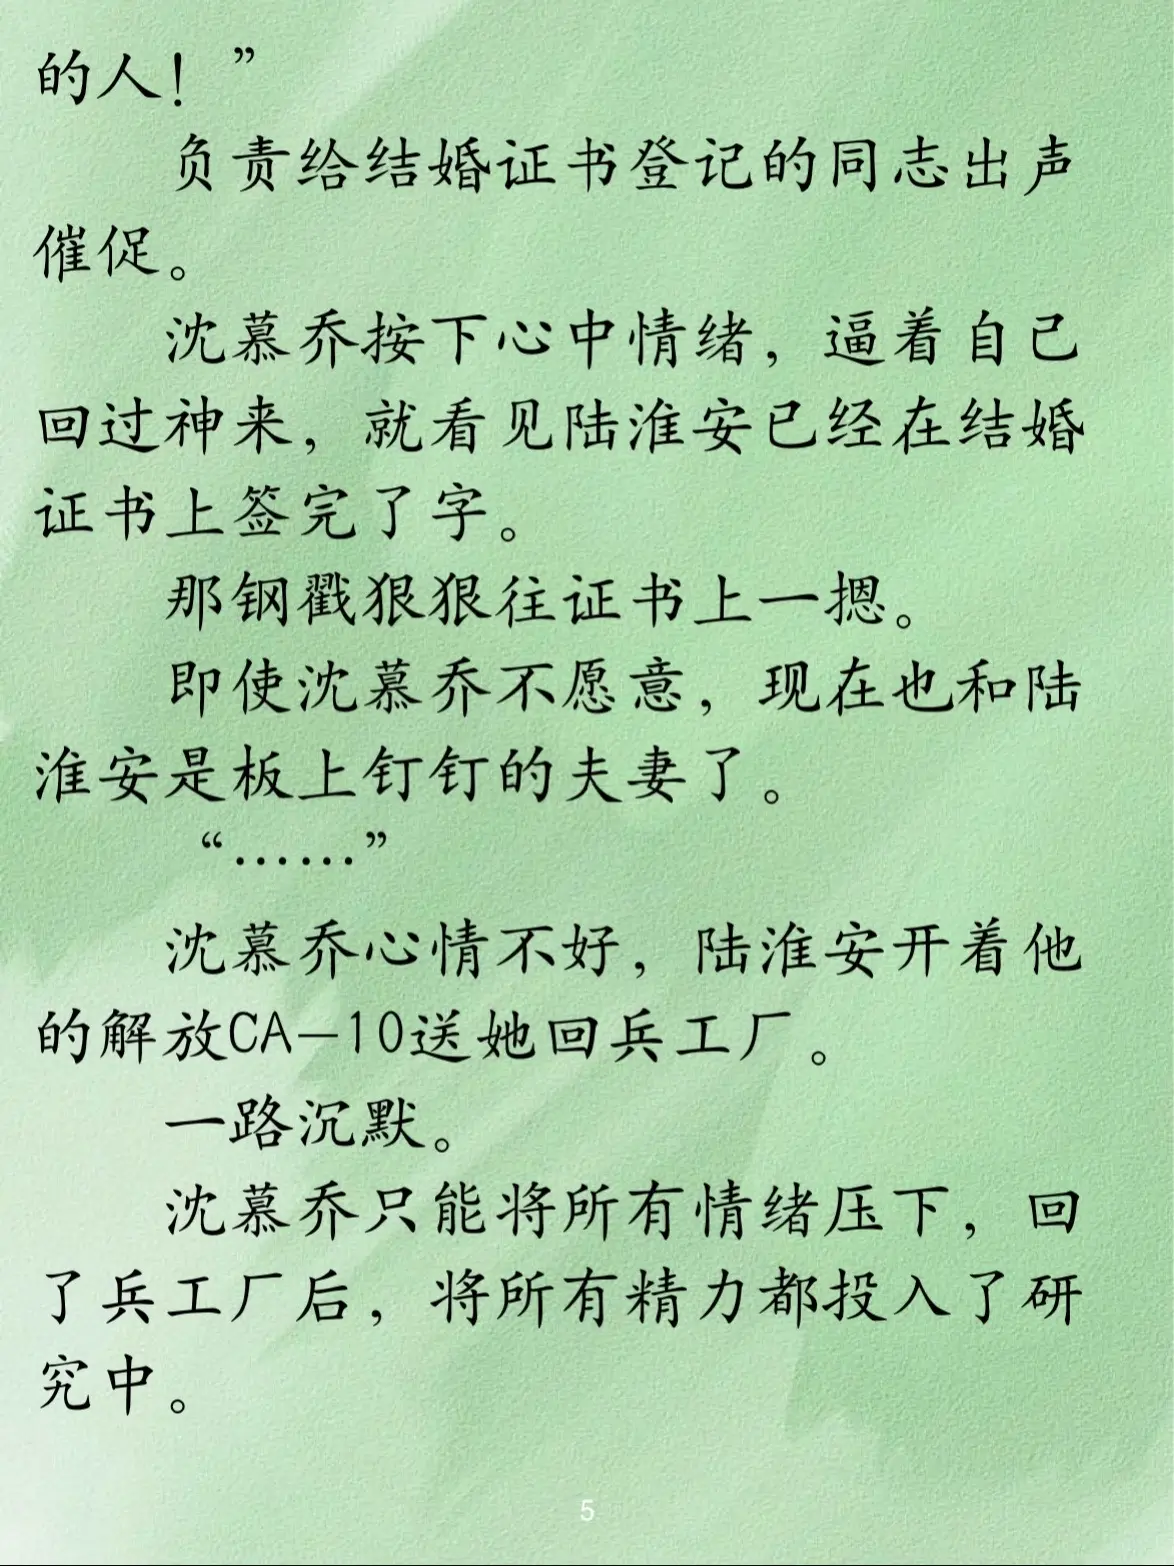 的人！”
负责给结婚证书登记的同志出声
催促。
沈慕乔按下心中情绪，逼着自己
回过神来，就看见陆淮安已经在结婚
证书上签完了字。
那钢戳狠狠往证书上一摁。
即使沈慕乔不愿意，现在也和陆
淮安是板上钉钉的夫妻了。
“……”
沈慕乔心情不好，陆淮安开着他
的解放CA-10送她回兵工厂。
一路沉默。
沈慕乔只能将所有情绪压下，回
了兵工厂后，将所有精力都投入了研
究中。
5